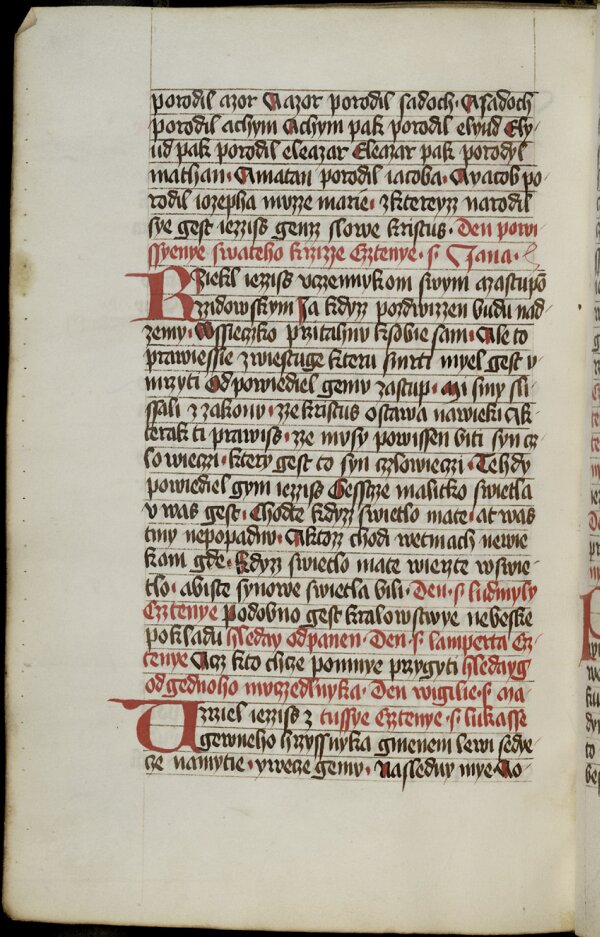 porodil azor Aazor porodil sadoch· Asadoch
porodil achym Achym pak porodil elyud Ely-
ud pak porodil eleazar Eleazar pak porodyl
mathan· Amatan porodil iacoba· Ayacob po-
rodil iozepha muzze marie· zkterezz narodil
sye gest iezziss genz slowe kristus· Den powi-
ssyenye swateho krzizze Cztenye· s· Jana·
Rziekl iezziss vczennykom swym azastupō
zzidowskym Ja kdyz pozdwizzen budu nad
zemy· Wssieczko przitahnu ksobie sam· Ale to
prawiessie zwiestuge kteru smrti myel gest v-
mrzyti Odpowiediel gemu zastup· mi smy sli-
ssali z zakonu· zze kristus ostawa nawieki Ak-
terak ti prawiss· zze musy powissen biti syn cz-
lowieczi· ktery gest to syn czlowieczi· Tehdy
powiediel gym iezziss Gesstze malitko swietla
v was gest· Chodte kdyz swietlo mate· at was
tmy nepopadnu· Aktoz chodi wetmach newie
kam gde· Kdyz swietlo mate wierzte wswie-
tlo· abiste synowe swietla bili· Den· s· ludmyly
Cztenye Podobno gest kralowstwye nebeske
pokladu hleday odpanen· Den· s· lamperta Cz-
tenye Acz kto chcze pomnye przygyti hledayg
odgednoho muczedlnyka· Den wigilie· s· ma-
Uzrziel iezziss z tussye Cztenye· s· lukasse
gewneho hrzyssnyka gmenem lewi sedye-
cze namytie· ywecze gemu· Nasleduy mye Ao-